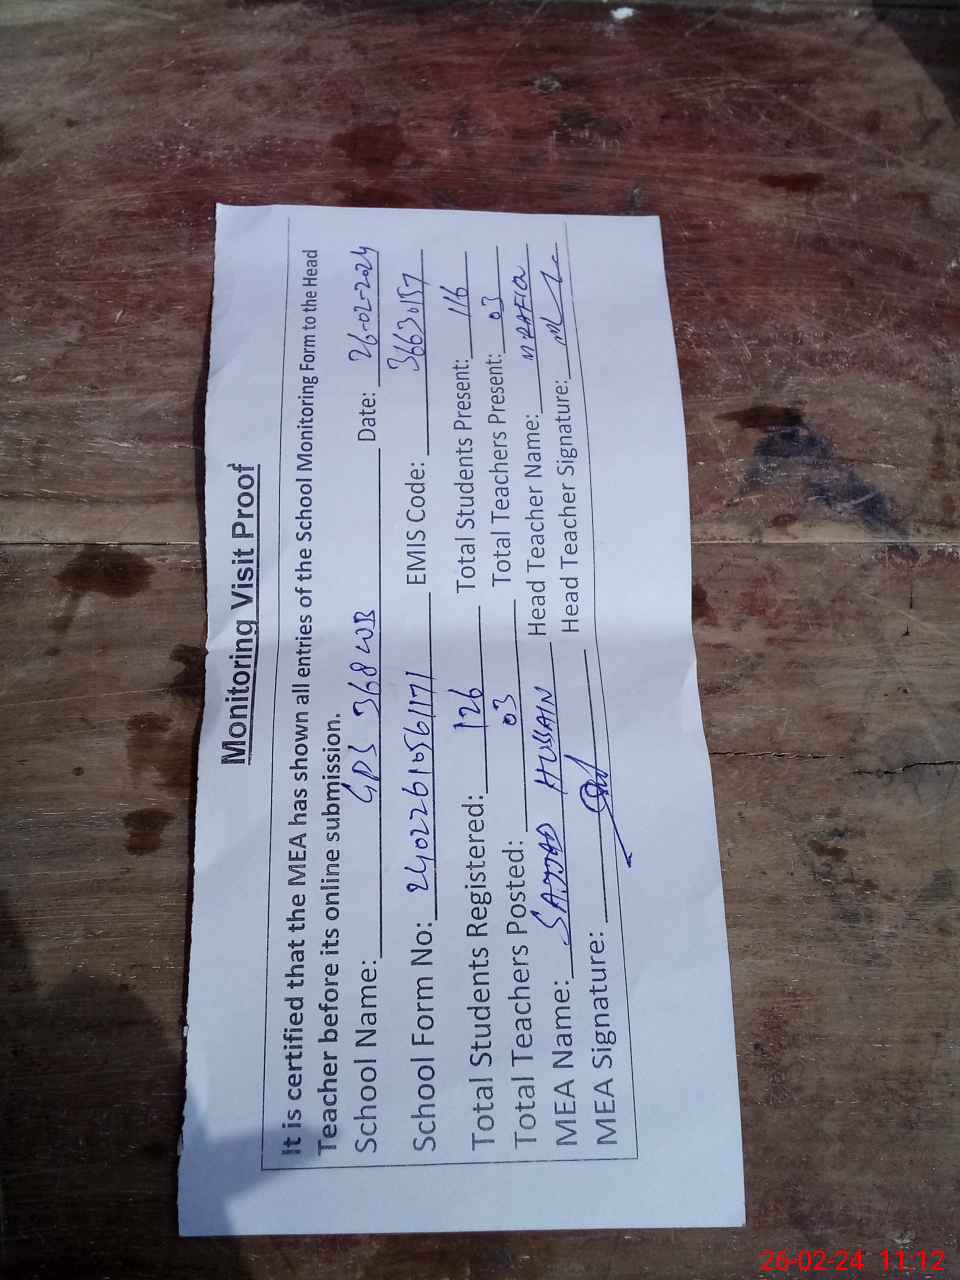 Monitoring Visit Proof
It is certified that the MEA has shown all entries of the School Monitoring Form to the Head
Teacher before its online submission.
School Name: GPS 368 WB Date: 26-02-2024
School Form No: 24022610561171 EMIS Code: 36630157
Total Students Registered: 126 Total Students Present: 116
Total Teachers Posted: 03 Total Teachers Present: 03
MEA Name: SAJJAD HUSSAIN Head Teacher Name: M RAFIQ
MEA Signature: Head Teacher Signature:
26-02-24 11:12